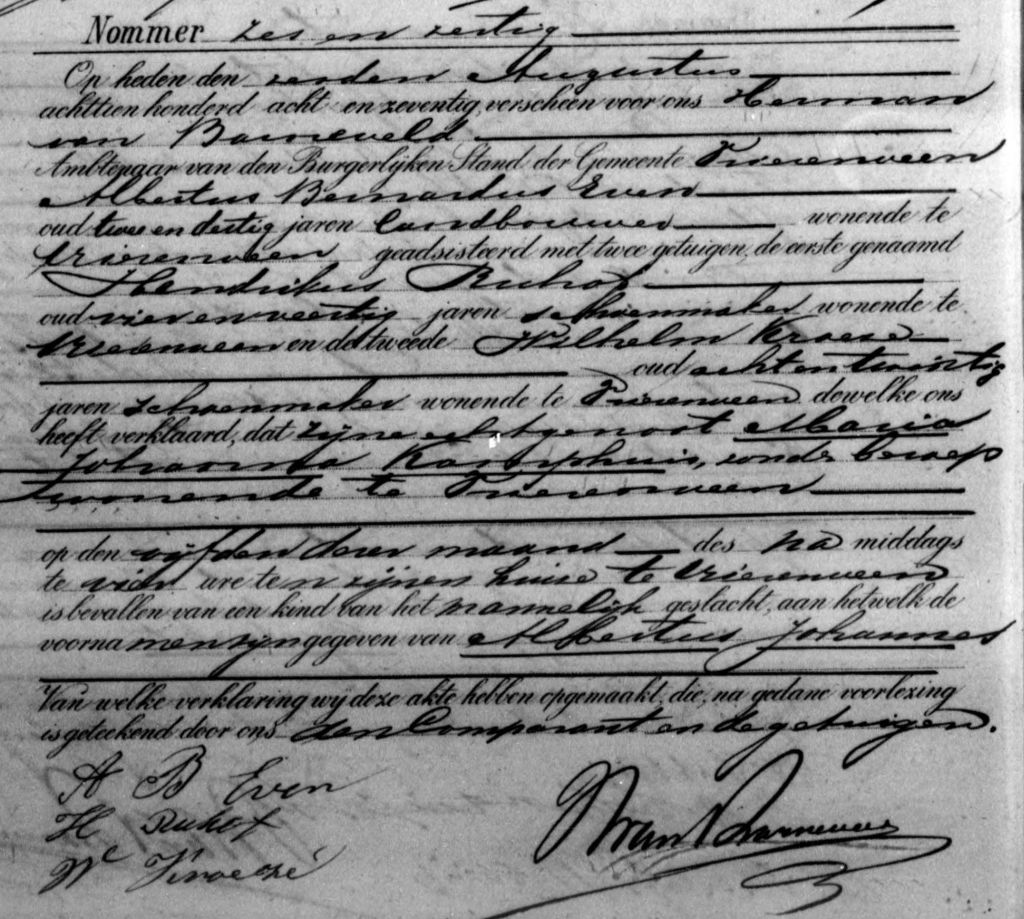 Nommer zes en zestig
Op heden den zesden Augustus
achttien honderd acht en zeventig, verscheen voor ons Herman
van Barneveld
Ambtenaar van den Burgerlijken Stand der Gemeente Vriezenveen
Albertus Bernardus Even
oud twee en dertig jaren landbouwer wonende te
Vriezenveen geadsisteerd met twee getuigen, de eerste genaamd
Hendrikus Ruhof
oud vier en veertig jaren schoenmaker wonende te
Vriezenveen en de tweede Wilhelm Kroese
oud acht en twintig
jaren schoenmaker wonende te Vriezenveen dewelke ons
heeft verklaard, dat zijne echtgenoot Maria
Johanna Kamphuis, zonder beroep
wonende te Vriezenveen
op den vijfden dezer maand des na middags
te vier ure ten zijnen huise te Vriezenveen
is bevallen van een kind van het mannelijk geslacht, aan hetwelk de
voornamen zijn gegeven van Albertus Johannes
Van welke verklaring wij deze akte hebben opgemaakt, die, na gedane voorlezing
is geteekend door ons den Comparant en de getuigen.
A B Even
H Ruhof
W Kroezé